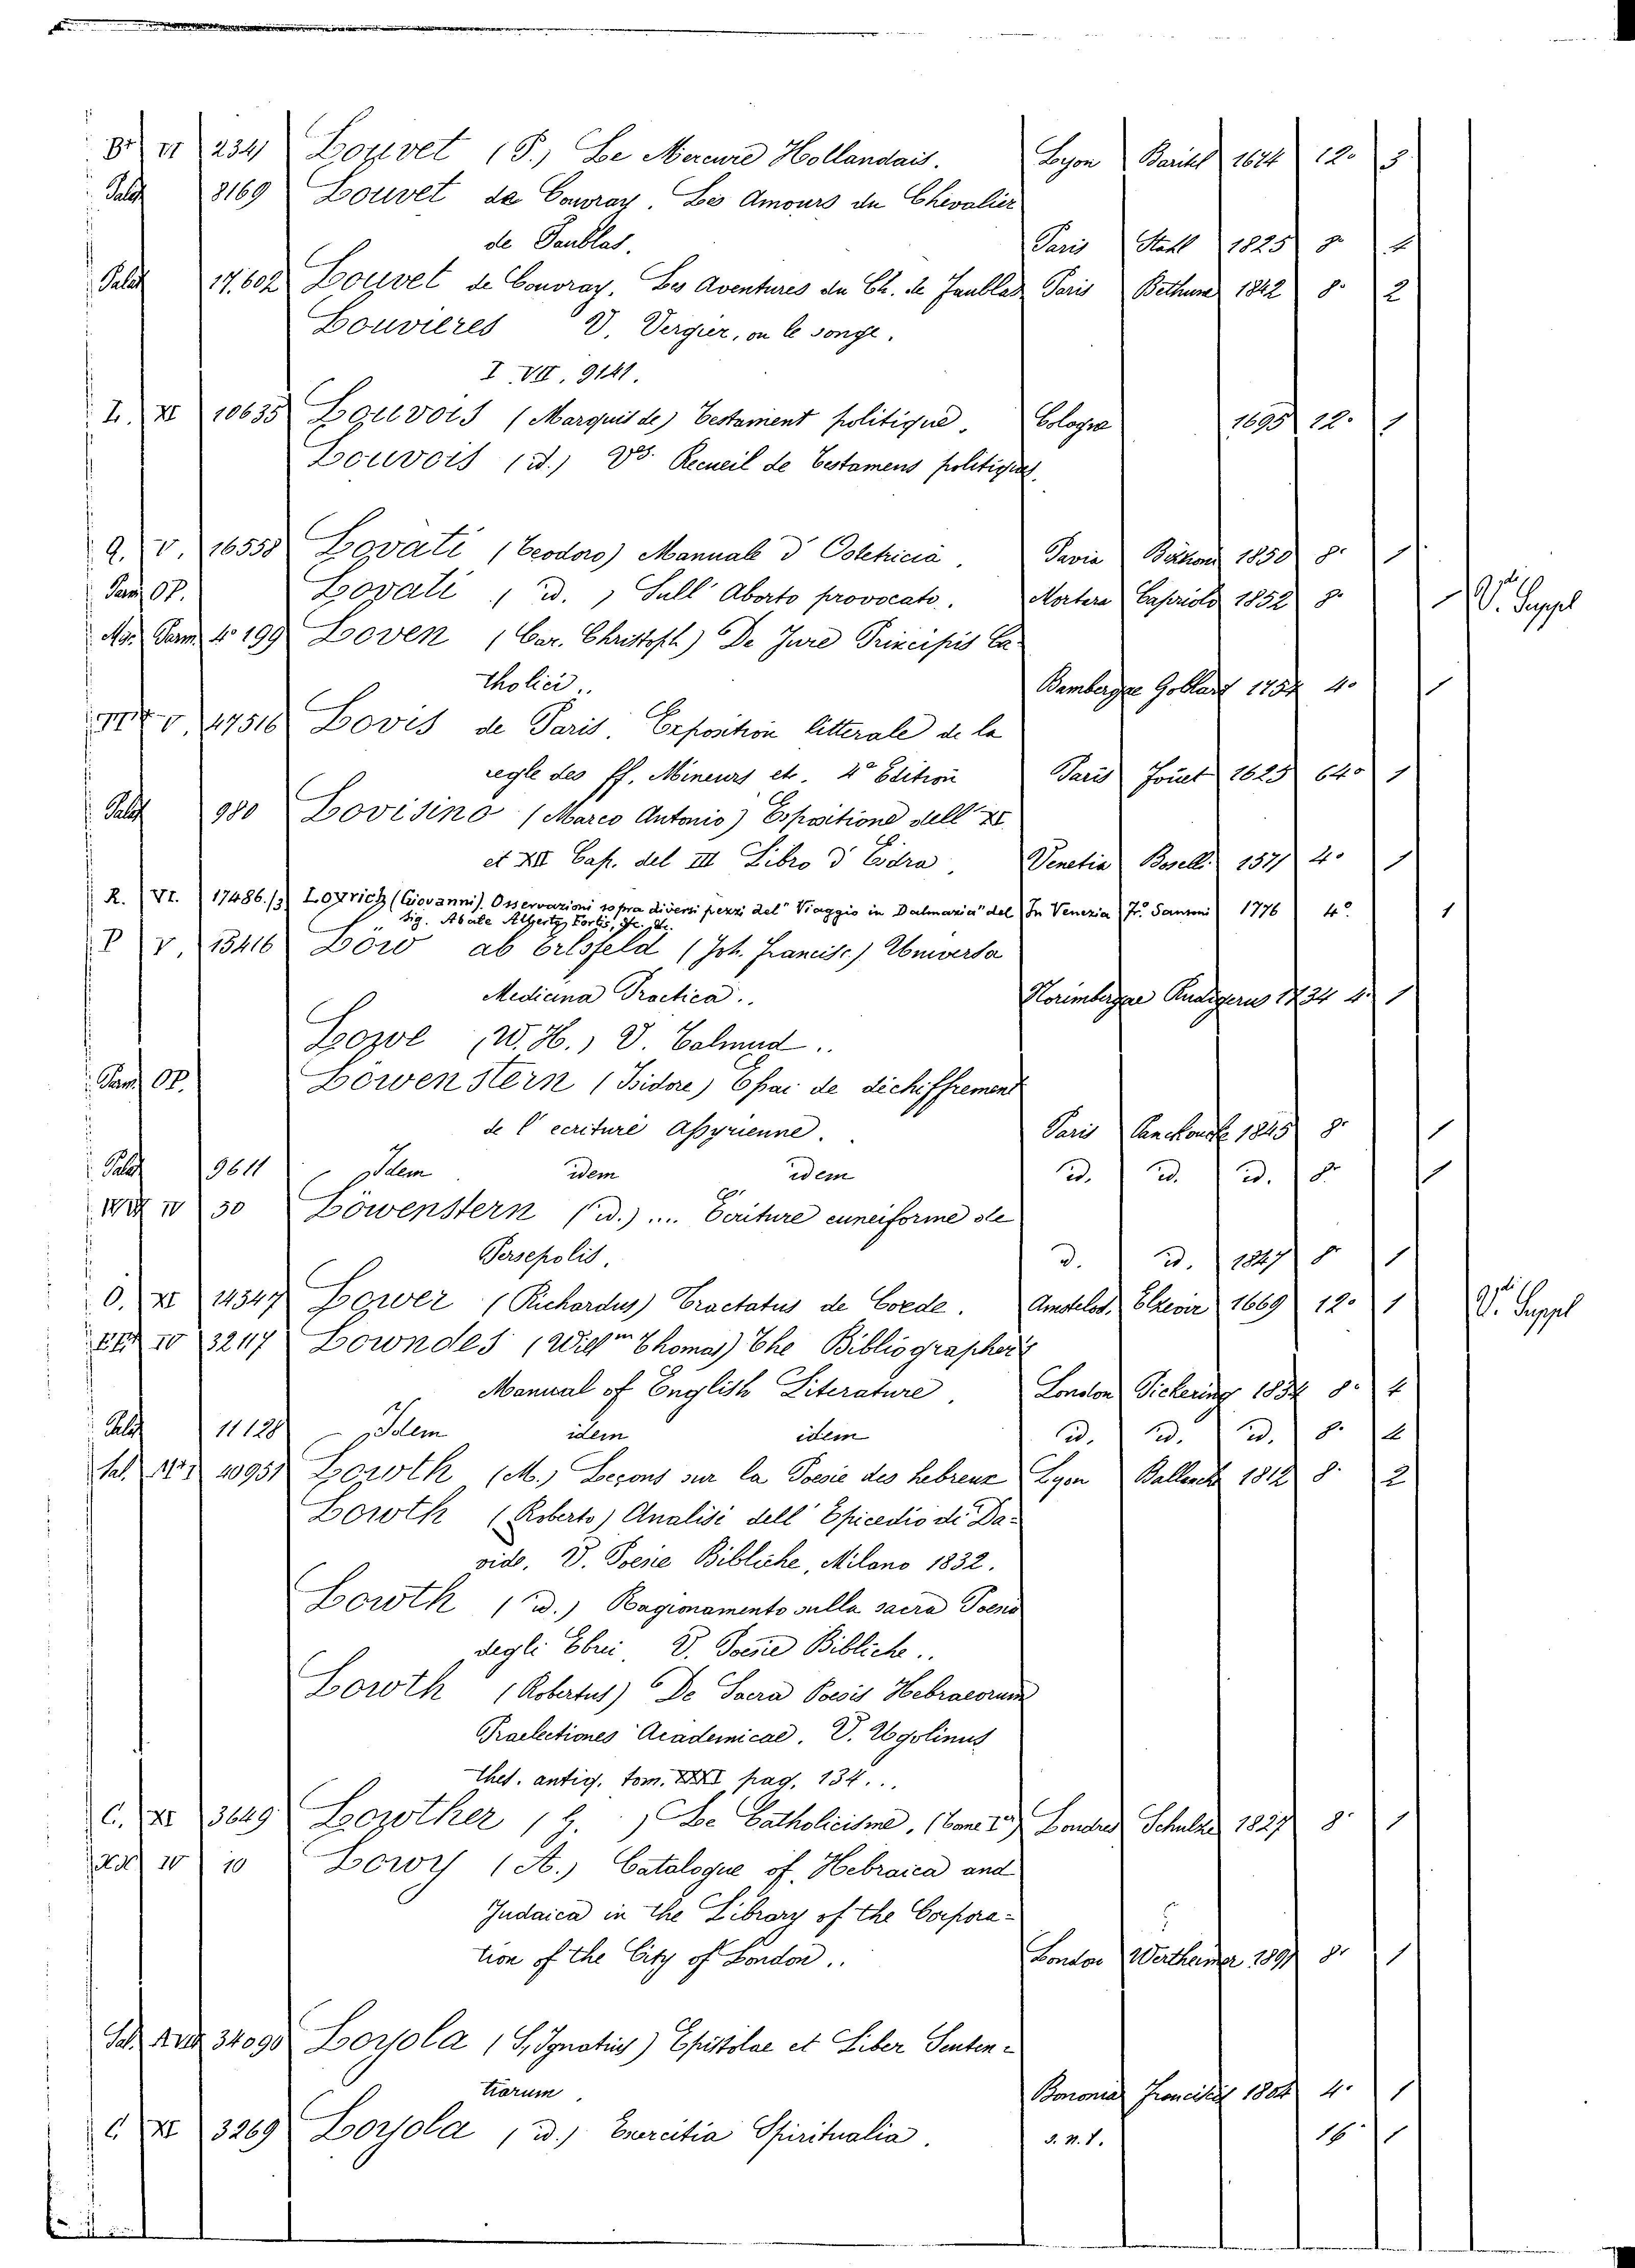 VI 2341 Louvet (P.) Le Mercure Hollandais. Lyon 1674 12º 3
Palat 8169 Louvet de Couvray. Les Amours du Chevalier
de Faublas. Paris 1825 8º 4
Palat 17.602 Louvet de Couvray. Les Aventures du Ch. de Faublas Paris Bethune 1842 8º 2
Louvieres V. Vergier, ou le songe.
I VII. 9141.
I. XI 10635 Louvois (Marquis de) Testament politique. Cologne 1695 12º 1
Louvois (id.) Recueil de Testamens politiques.
Q. V. 16558 Lovati (Teodoro) Manuale d'Ostetricia. Pavia Bizzoni 1850 8º 1
Lovati (id.) Sull' Aborto provocato. Mortara Capriolo 1852 8º 1 Vdi Suppl
4º 199 Loven (Car. Christoph.) De Jure Principis Ca-
tholici.. Bambergae 4º 1
V. 47516 Lovis de Paris. Exposition litterale de la
regle des ff. Mineurs etc. 4e Edition Paris 1623 64º 1
Palat 980 Lovisino (Marco Antonio) Espositione dell' XI
et XII Cap. del III Libro d'Esdra. Venetia Boselli 1571 4º 1
R. VI. 17486./3 Lovrich (Giovanni). Osservazioni sopra diversi pezzi del "Viaggio in Dalmazia" del In Venezia Fr. Sansoni 1776 4º 1
sig. Abate Alberto Fortis, &c. &c.
P V. 13416 Löw ab Erlsfeld (Joh. Francisc.) Universa
Medicina Practica.. Norimbergae Rudigerus 1724 4º 1
Lowe (W. H.) V. Talmud..
Löwenstern (Isidore) Essai de déchiffrement
de l'ecriture Assyrienne. Paris 1845 8º 1
Palat 9611 Idem idem idem id. id. id. 8º 1
IV 50 Löwenstern (id.) ... Ecriture cuneiforme de
Persepolis. id. id. 1847 8º 1
O. XI 14347 Lower (Richardus) Tractatus de Corde. Amstelod. Elzevir 1669 12º 1 Vdi Suppl
IV 32117 Lowndes (Willm Thomas) The Bibliographer's
Manual of English Literature. London Pickering 1834 8º 4
Palat 11128 Idem idem idem id. id. id. 8º 4
Sal. 40951 Lowth (M.) Leçons sur la Poesie des hebreux Lyon Ballanche 1812 8º 2
Lowth (Roberto) Analisi dell' Epicedio di Da-
vide. V. Poesie Bibliche, Milano 1832.
Lowth (id.) Ragionamento sulla sacra Poesia
degli Ebrei V. Poesie Bibliche..
Lowth (Robertus) De Sacra Poesis Hebraeorum
Praelectiones Academicae. V. Ugolinus
thes. antiq. tom. XXXI pag. 134...
C. XI 3649 Lowther (G. ) Le Catholicisme. (Tome Ier) Londres Schulze 1827 8º 1
IV 10 Lowy (A.) Catalogue of Hebraica and
Judaica in the Library of the Corpora-
tion of the City of London.. London Wertheimer 1891 8º 1
Sal. 34090 Loyola (S. Ignatius) Epistolae et Liber Senten-
tiarum. Bononiae 4º 1
C. XI 3269 Loyola (id.) Exercitia Spiritualia. s. n. t. 16º 1